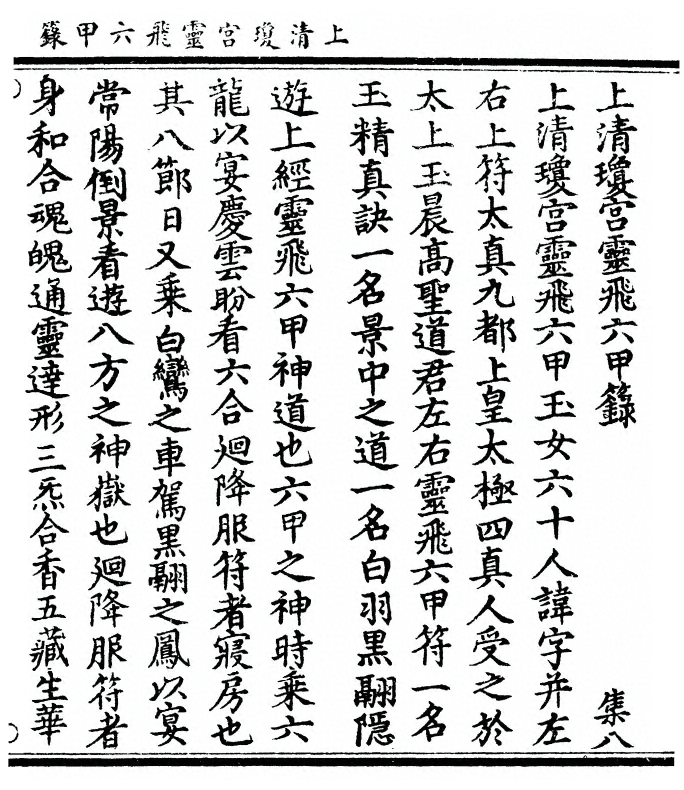 上清瓊宮靈飛六甲籙
上清瓊宮靈飛六甲籙 集八
上清瓊宮靈飛六甲玉女六十人諱字并左
右上符太真九都上皇太極四真人受之於
太上玉晨高聖道君左右靈飛六甲符一名
玉精真訣一名景中之道一名白羽黑翮隱
遊上經靈飛六甲神道也六甲之神時乘六
龍以宴慶雲盼看六合迴降服符者寢房也
其八節日又乘白鸞之車駕黑翮之鳳以宴
常陽倒景看遊八方之神嶽也迴降服符者
身和合魂魄通靈達形三炁合香五藏生華